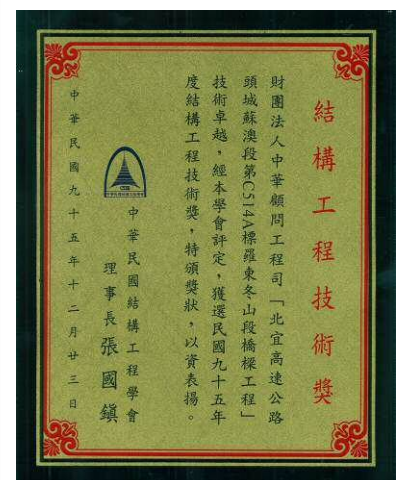 結構工程技術獎
財團法人中華顧問工程司「北宜高速公路
頭城蘇澳段第C514A標羅東冬山段橋樑工程」
技術卓越，經本學會評定，獲選民國九十五年
度結構工程技術獎，特頒獎狀，以資表揚。
中華民國結構工程學會
理事長張國鎮
中華民國九十五年十二月廿三日